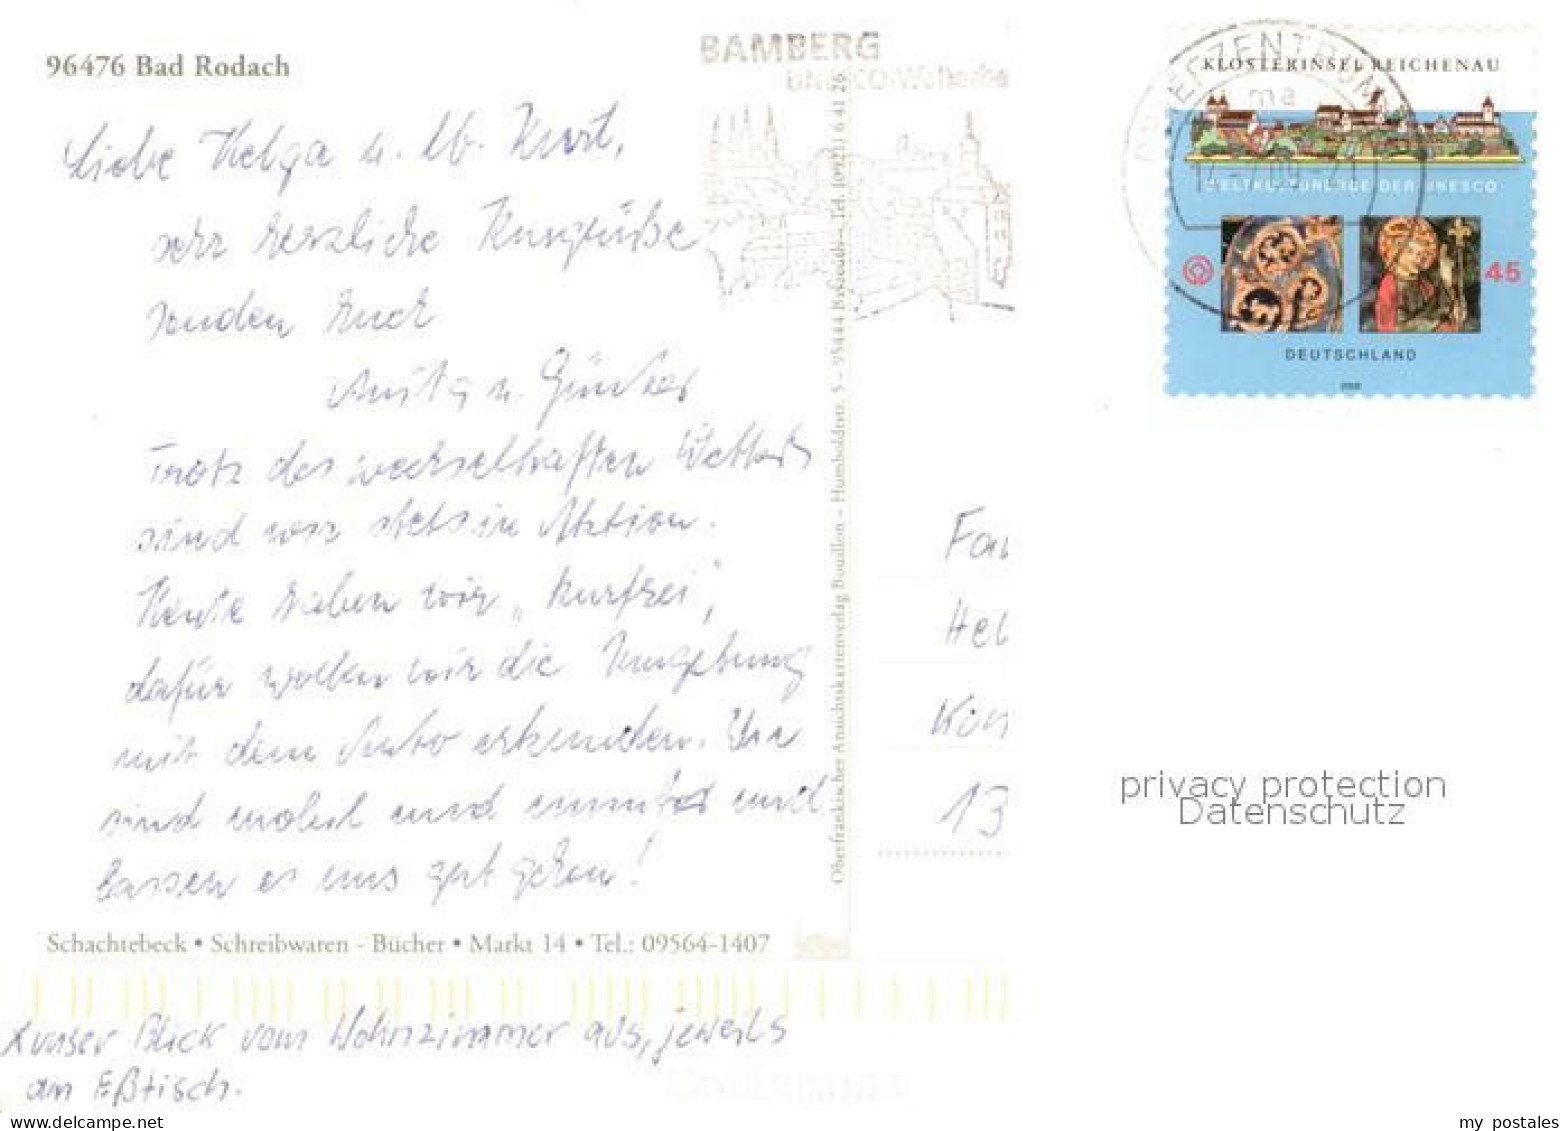 96476 Bad Rodach
BAMBERG
UNESCO-Welterbe
Liebe Helga u. lb. Kurt,
sehr herzliche Kurgrüße
senden Euch
Anita u. Günter
Trotz des wechselhaften Wetters
sind wir stets in Aktion.
Heute haben wir „kurfrei",
dafür wollen wir die Umgebung
mit dem Auto erkunden. Wir
sind wohl und munter und
lassen es uns gut gehen!
Schachtebeck • Schreibwaren - Bücher • Markt 14 • Tel.: 09564-1407
x unser Blick vom Wohnzimmer aus, jeweils
am Eßtisch.
Oberfränkischer Ansichtskartenverlag Bouillon – Humboldtstr. 5 – 95444 Bayreuth – Tel. (0921) 6 41 26
BRIEFZENTRUM
KLOSTERINSEL REICHENAU
WELTKULTURERBE DER UNESCO
45
DEUTSCHLAND
Fa
Hel
Kon
13
privacy protection
Datenschutz
my postales